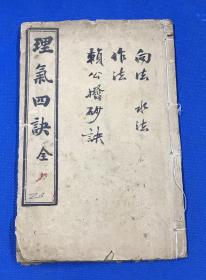 理氣四訣全
向法 水法
作法
賴公撥砂訣